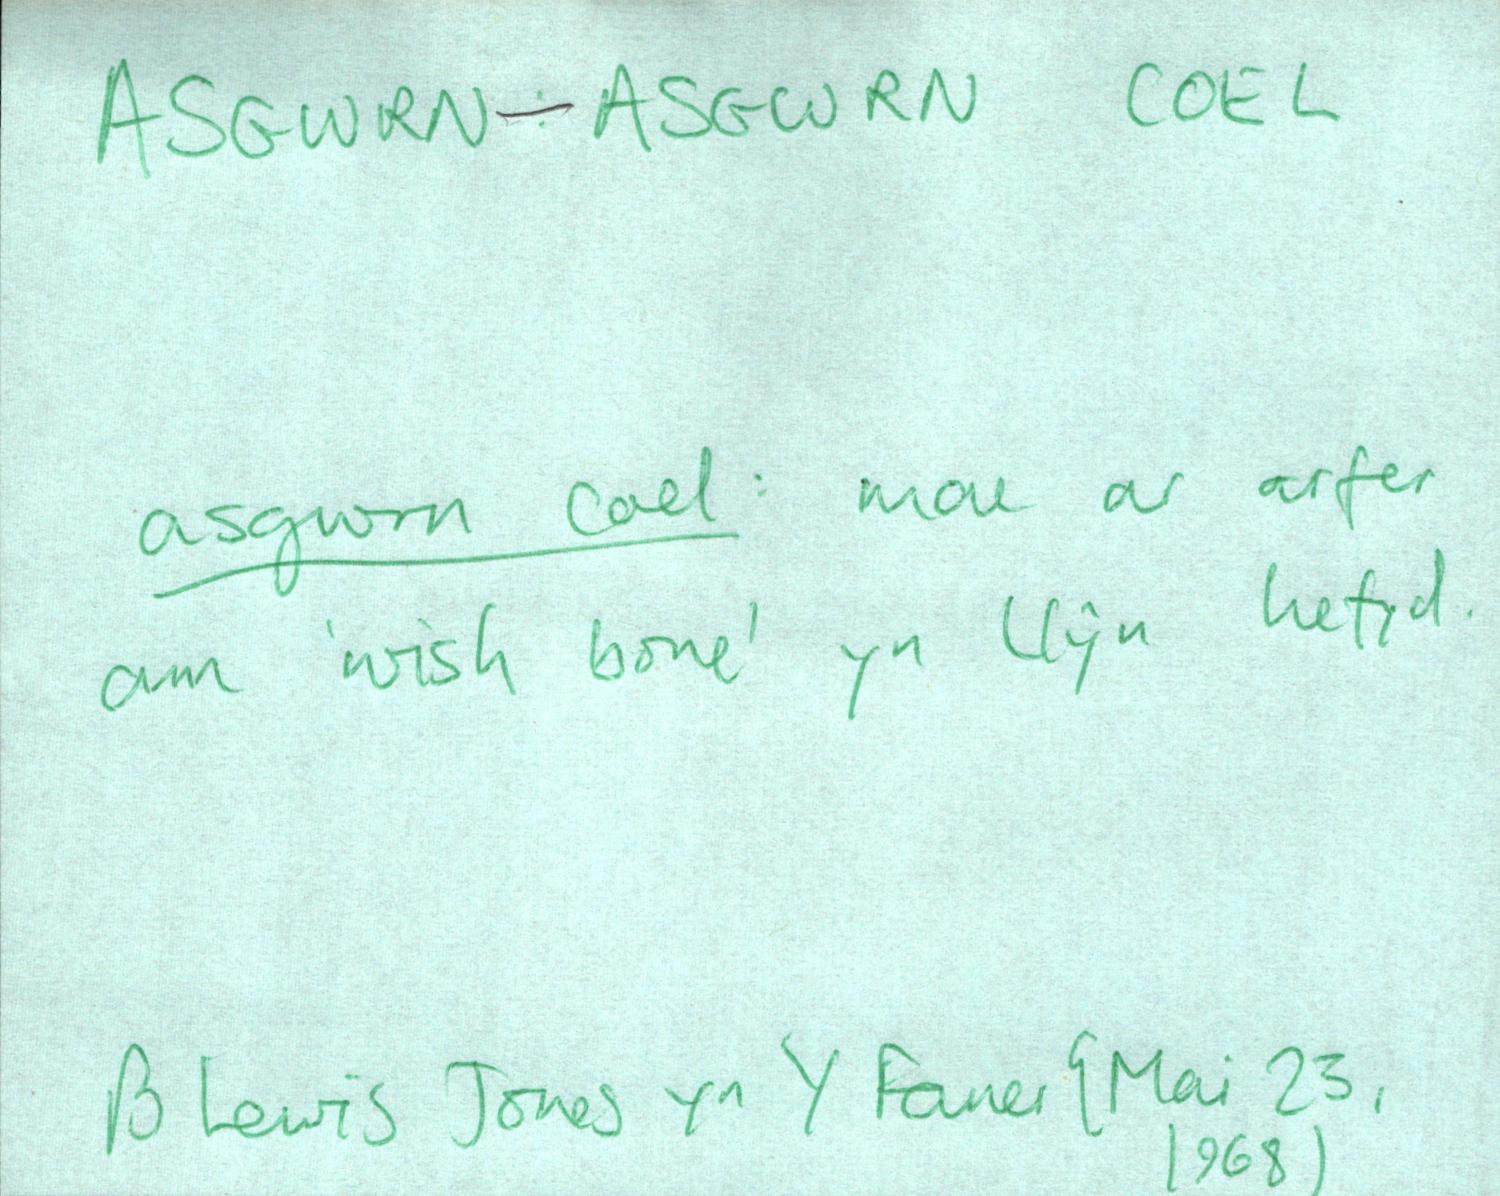 ASGWRN - ASGWRN COEL
asgwrn coel: mae ar arfer
am 'wish bone' yn Llŷn hefyd.
B Lewis Jones yn Y Faner (Mai 23,
1968)